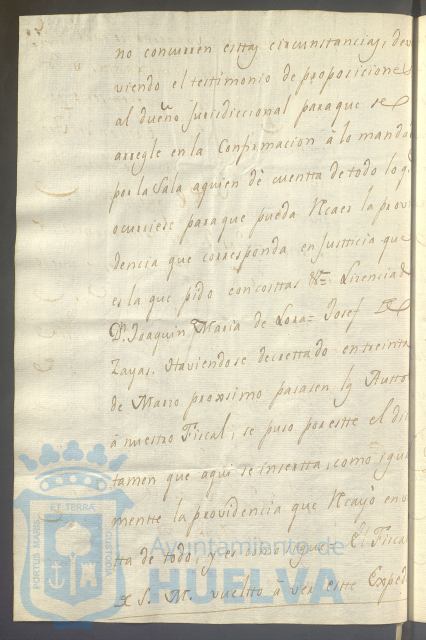 no concurren esttas circunstancias, devol
viendo el testimonio de proposiciones
al dueño Jurisdiccional para que se
arregle en la Confirmacion à lo mandado
por la Sala aquien dè cuentta de todo lo q.
ocurriese para que pueda Recaer la provi
dencia que corresponda en Justticia que
es la que pido con costtas &ª Licenciado
Dn. Joaquin Maria de Lora= Josef de
Zayas. Haviendose decrettado en treinta
de Marzo proximo pasasen los Auttos
à nuestro Fiscal, se puso por estte el dic
tamen que aqui se insertta, como igual
mentte la providencia que Recayò en vis
tta de todo, y es como sigue El Fiscal
de S. M. vueltto à ver estte Expedi
PORTUS MARIS
ET TERRA
CUSTODIA
Ayuntamiento de
HUELVA